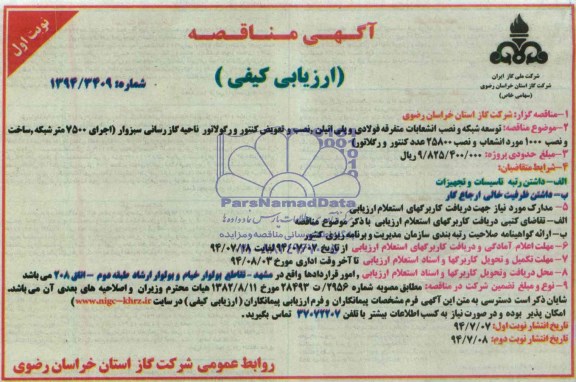 نوبت اول
آگهی مناقصه
(ارزیابی کیفی)
شماره: ۱۳۹۴/۳۴۰۹
شرکت ملی گاز ایران
شرکت گاز استان خراسان رضوی
(سهامی خاص)
۱-مناقصه گزار: شرکت گاز استان خراسان رضوی
۲-موضوع مناقصه: توسعه شبکه و نصب انشعابات متفرقه فولادی و پلی اتیلن ,نصب و تعویض کنتور و رگولاتور ناحیه گاز رسانی سبزوار (اجرای ۷۵۰۰ متر شبکه ,ساخت
و نصب ۱۰۰۰ مورد انشعاب و نصب ۲۵۸۰۰ عدد کنتور و رگلاتور)
۳-مبلغ حدودی پروژه: ۹/۸۲۵/۴۰۰/۰۰۰ ریال
۴-شرایط متقاضیان:
الف-داشتن رتبه تاسیسات و تجهیزات
ب-داشتن ظرفیت خالی ارجاع کار
۵-مدارک مورد نیاز جهت دریافت کاربرگهای استعلام ارزیابی
الف-تقاضای کتبی دریافت کاربرگهای استعلام ارزیابی با ذکر موضوع مناقصه
ب-ارائه گواهینامه صلاحیت رتبه بندی سازمان مدیریت و برنامه ریزی کشور
۶-مهلت اعلام آمادگی و دریافت کاربرگهای استعلام ارزیابی از تاریخ ۹۴/۰۷/۰۷ لغایت ۹۴/۰۷/۲۸
۷-مهلت تکمیل و تحویل کاربرگها و اسناد استعلام ارزیابی تا آخر وقت اداری مورخ ۹۴/۰۸/۰۳
۸-محل دریافت وتحویل کاربرگها و اسناد استعلام ارزیابی , امور قراردادها واقع در مشهد - تقاطع بولوار خیام و بولوار ارشاد طبقه دوم -اتاق ۲۰۸ می باشد
۹-نوع و مبلغ تضمین شرکت در مناقصه: مطابق مصوبه شماره ۲۹۵۶/ت ۲۸۴۹۳ مورخ ۱۳۸۲/۸/۱۱ هیات محترم وزیران و اصلاحیه های بعدی آن می باشد.
شایان ذکر است دسترسی به متن این آگهی فرم مشخصات پیمانکاران و فرم ارزیابی پیمانکاران (ارزیابی کیفی) در سایت (www.nigc-khrz.ir)
امکان پذیر بوده و در صورت نیاز به کسب اطلاعات بیشتر با تلفن ۳۷۰۷۲۲۰۷ تماس بگیرید.
تاریخ انتشار نوبت اول: ۹۴/۷/۰۷
تاریخ انتشار نوبت دوم: ۹۴/۷/۰۸
روابط عمومی شرکت گاز استان خراسان رضوی
ParsNamadData